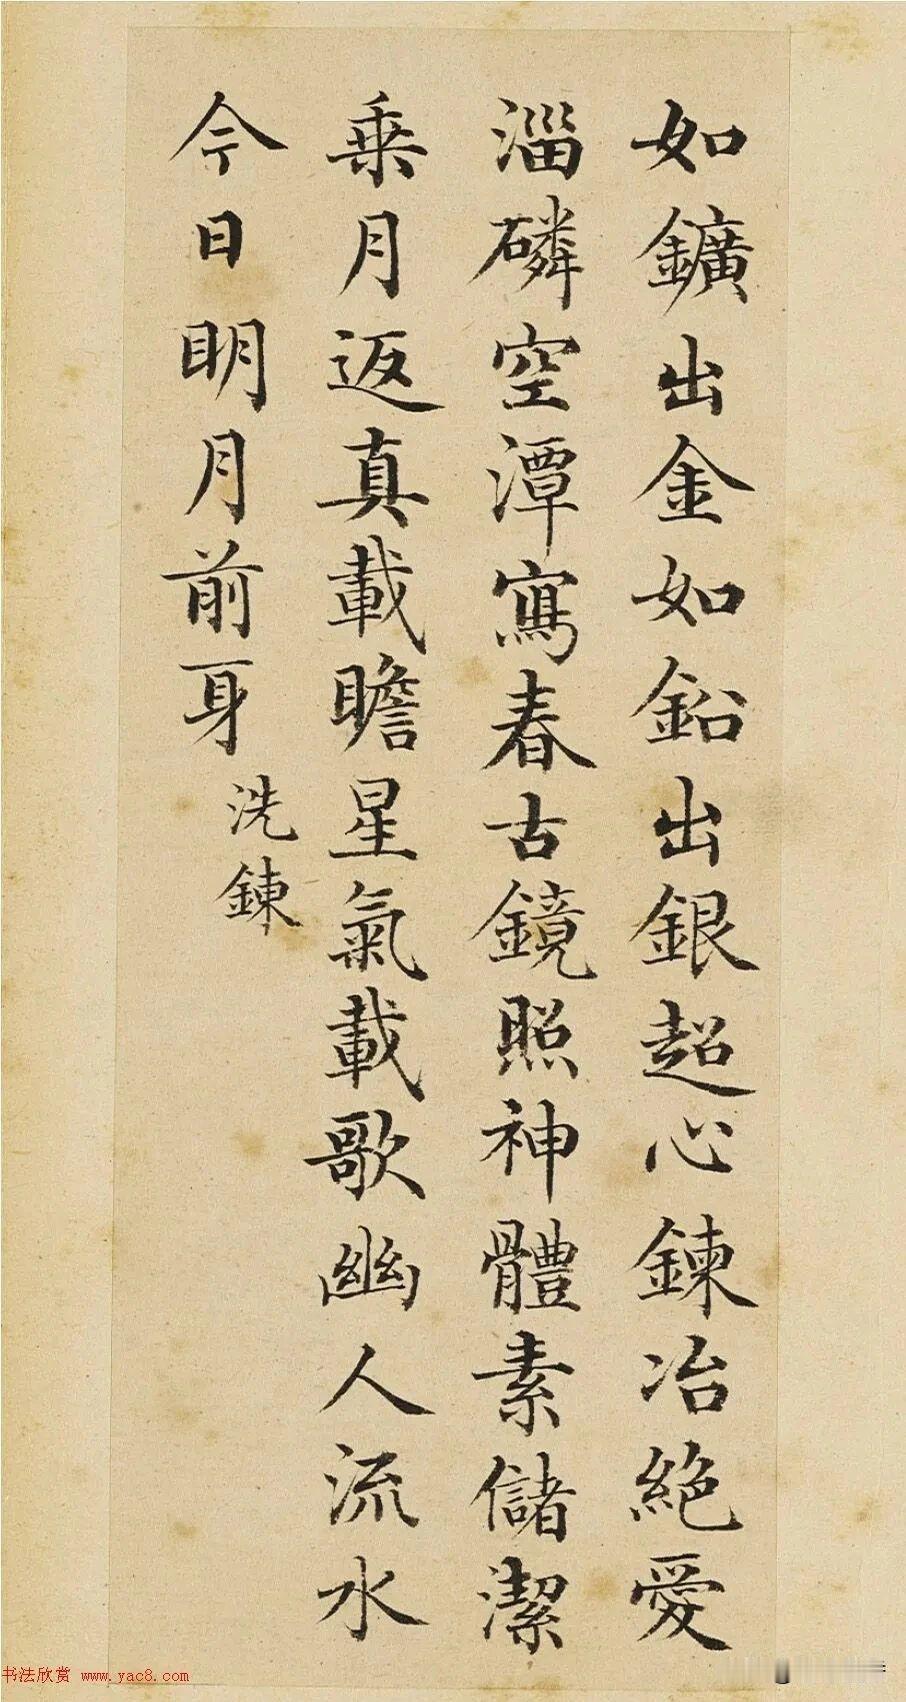 如鑛出金如鉛出銀超心鍊冶絕愛
淄磷空潭寫春古鏡照神體素儲潔
乗月返真載瞻星氣載歌幽人流水
今日明月前身
洗鍊
书法欣赏 www.yac8.com